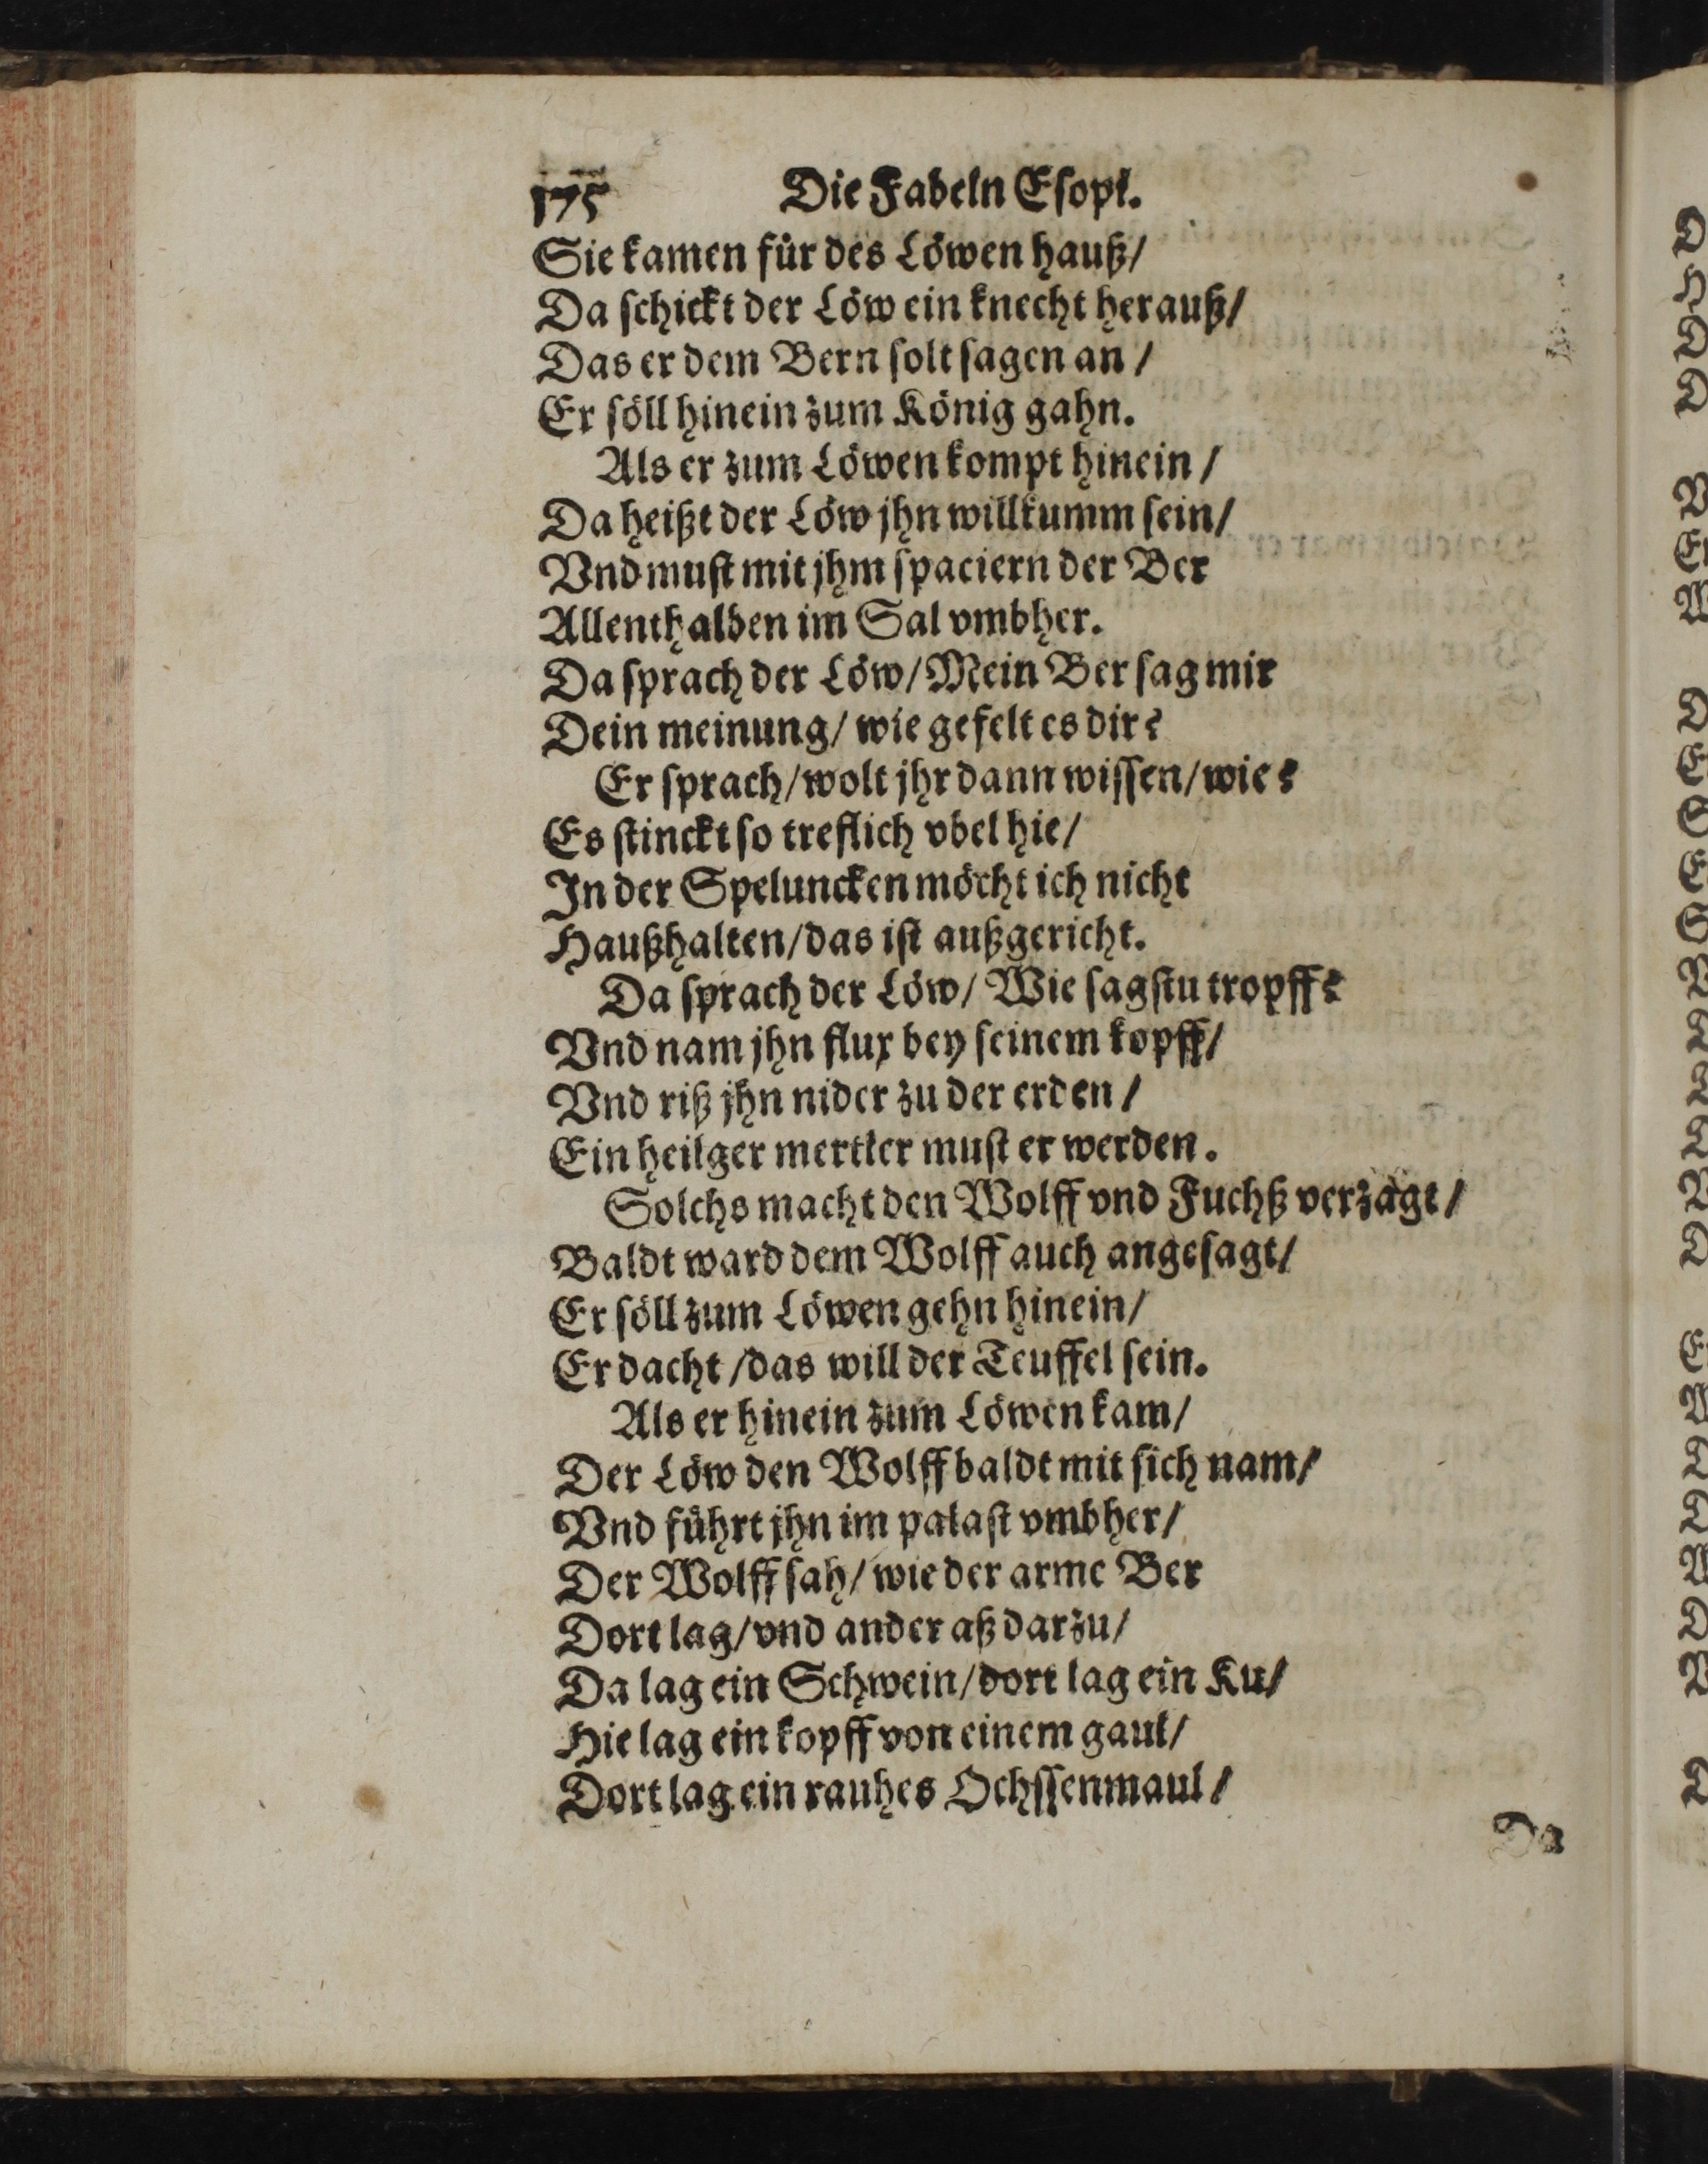 175 Die Fabeln Esopi.
Sie kamen für des Löwen hauß/
Da schickt der Löw ein knecht herauß/
Das er dem Bern solt sagen an /
Er söll hinein zum König gahn.
Als er zum Löwen kompt hinein /
Da heißt der Löw jhn willkumm sein/
Vnd must mit jhm spaciern der Ber
Allenthalben im Sal vmbher.
Da sprach der Löw/ Mein Ber sag mir
Dein meinung/ wie gefelt es dir?
Er sprach/ wolt jhr dann wissen/ wie?
Es stinckt so treflich vbel hie/
In der Speluncken möcht ich nicht
Haußhalten/ das ist außgericht.
Da sprach der Löw/ Wie sagstu tropff?
Vnd nam jhn flux bey seinem kopff/
Vnd riß jhn nider zu der erden /
Ein heilger mertler must er werden.
Solchs macht den Wolff vnd Fuchß verzagt /
Baldt ward dem Wolff auch angesagt/
Er söll zum Löwen gehn hinein/
Er dacht / das will der Teuffel sein.
Als er hinein zum Löwen kam/
Der Löw den Wolff baldt mit sich nam/
Vnd führt jhn im palast vmbher/
Der Wolff sah/ wie der arme Ber
Dort lag/ vnd ander aß darzu/
Da lag ein Schwein/ dort lag ein Ku/
Hie lag ein kopff von einem gaul/
Dort lag ein rauhes Ochssenmaul /
Da